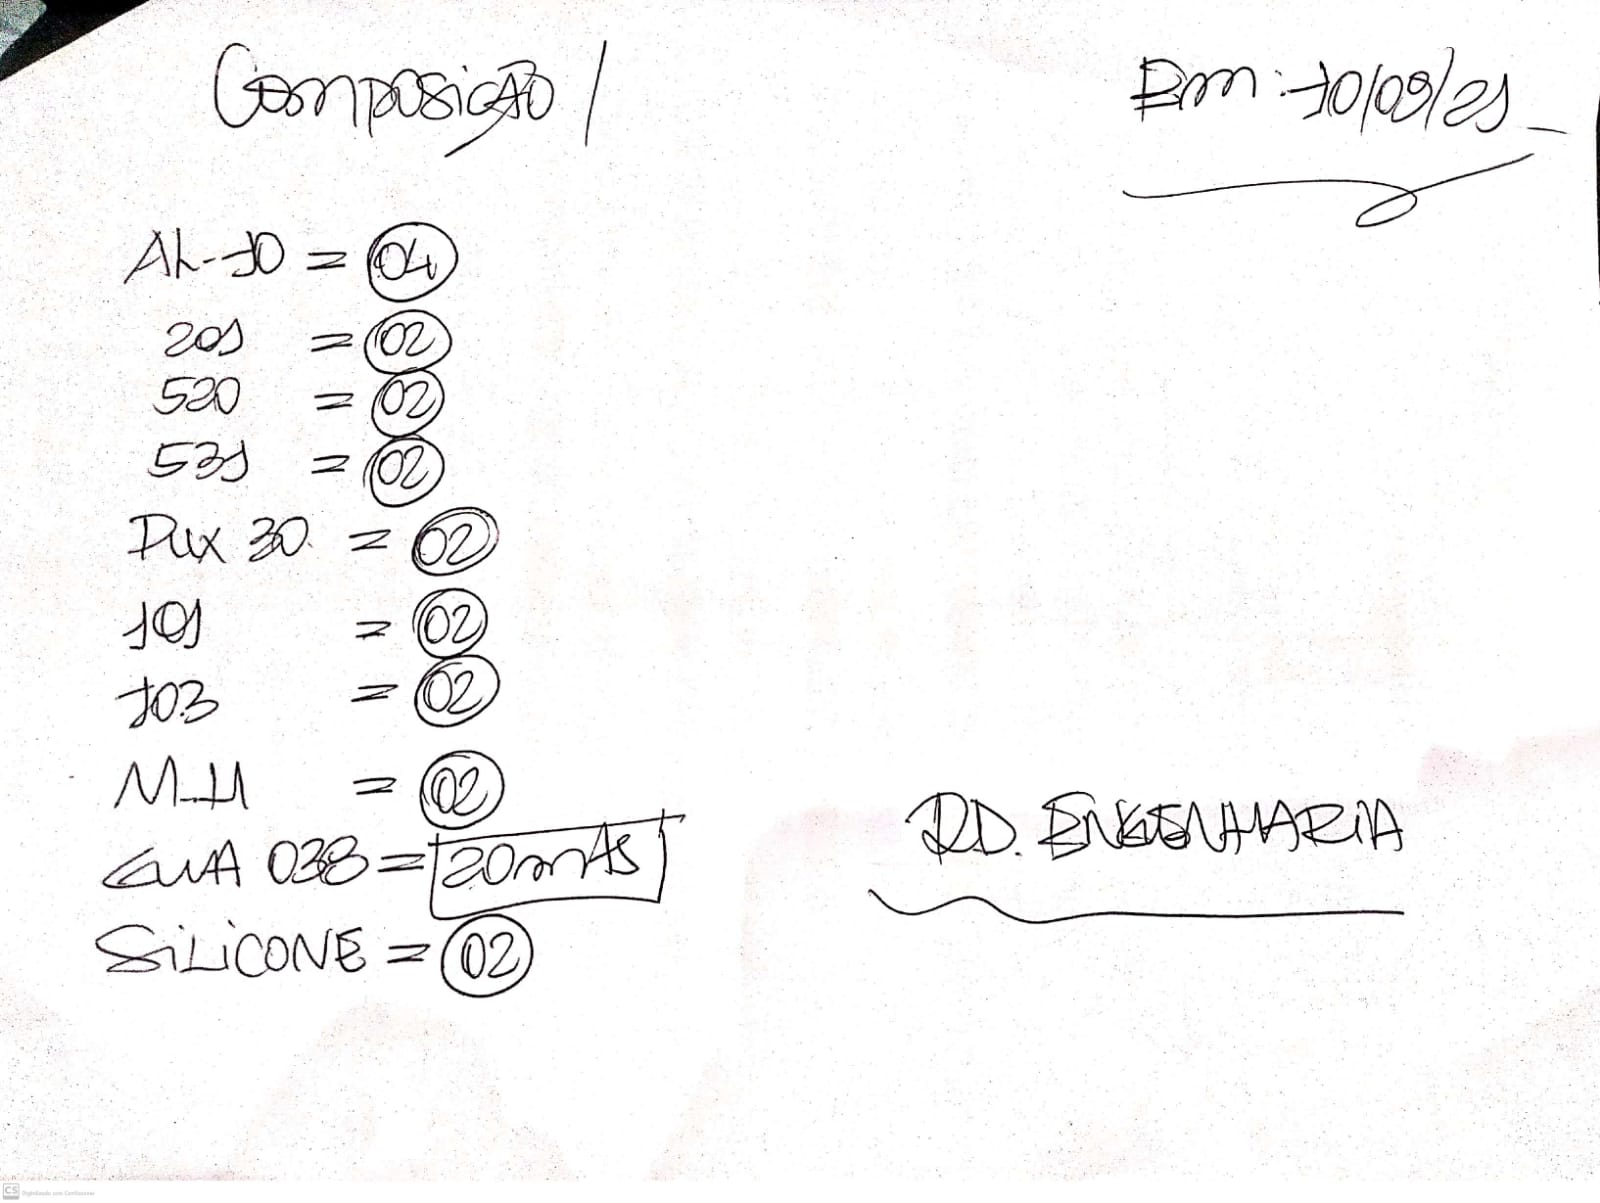 Composição /
Em: 10/09/21
AL-10 = 04
201 = 02
520 = 02
531 = 02
Pux 30 = 02
101 = 02
103 = 02
M-11 = 02
GUA 038 = 20mts
SILICONE = 02
RD. ENGENHARIA
CS Digitalizado com CamScanner